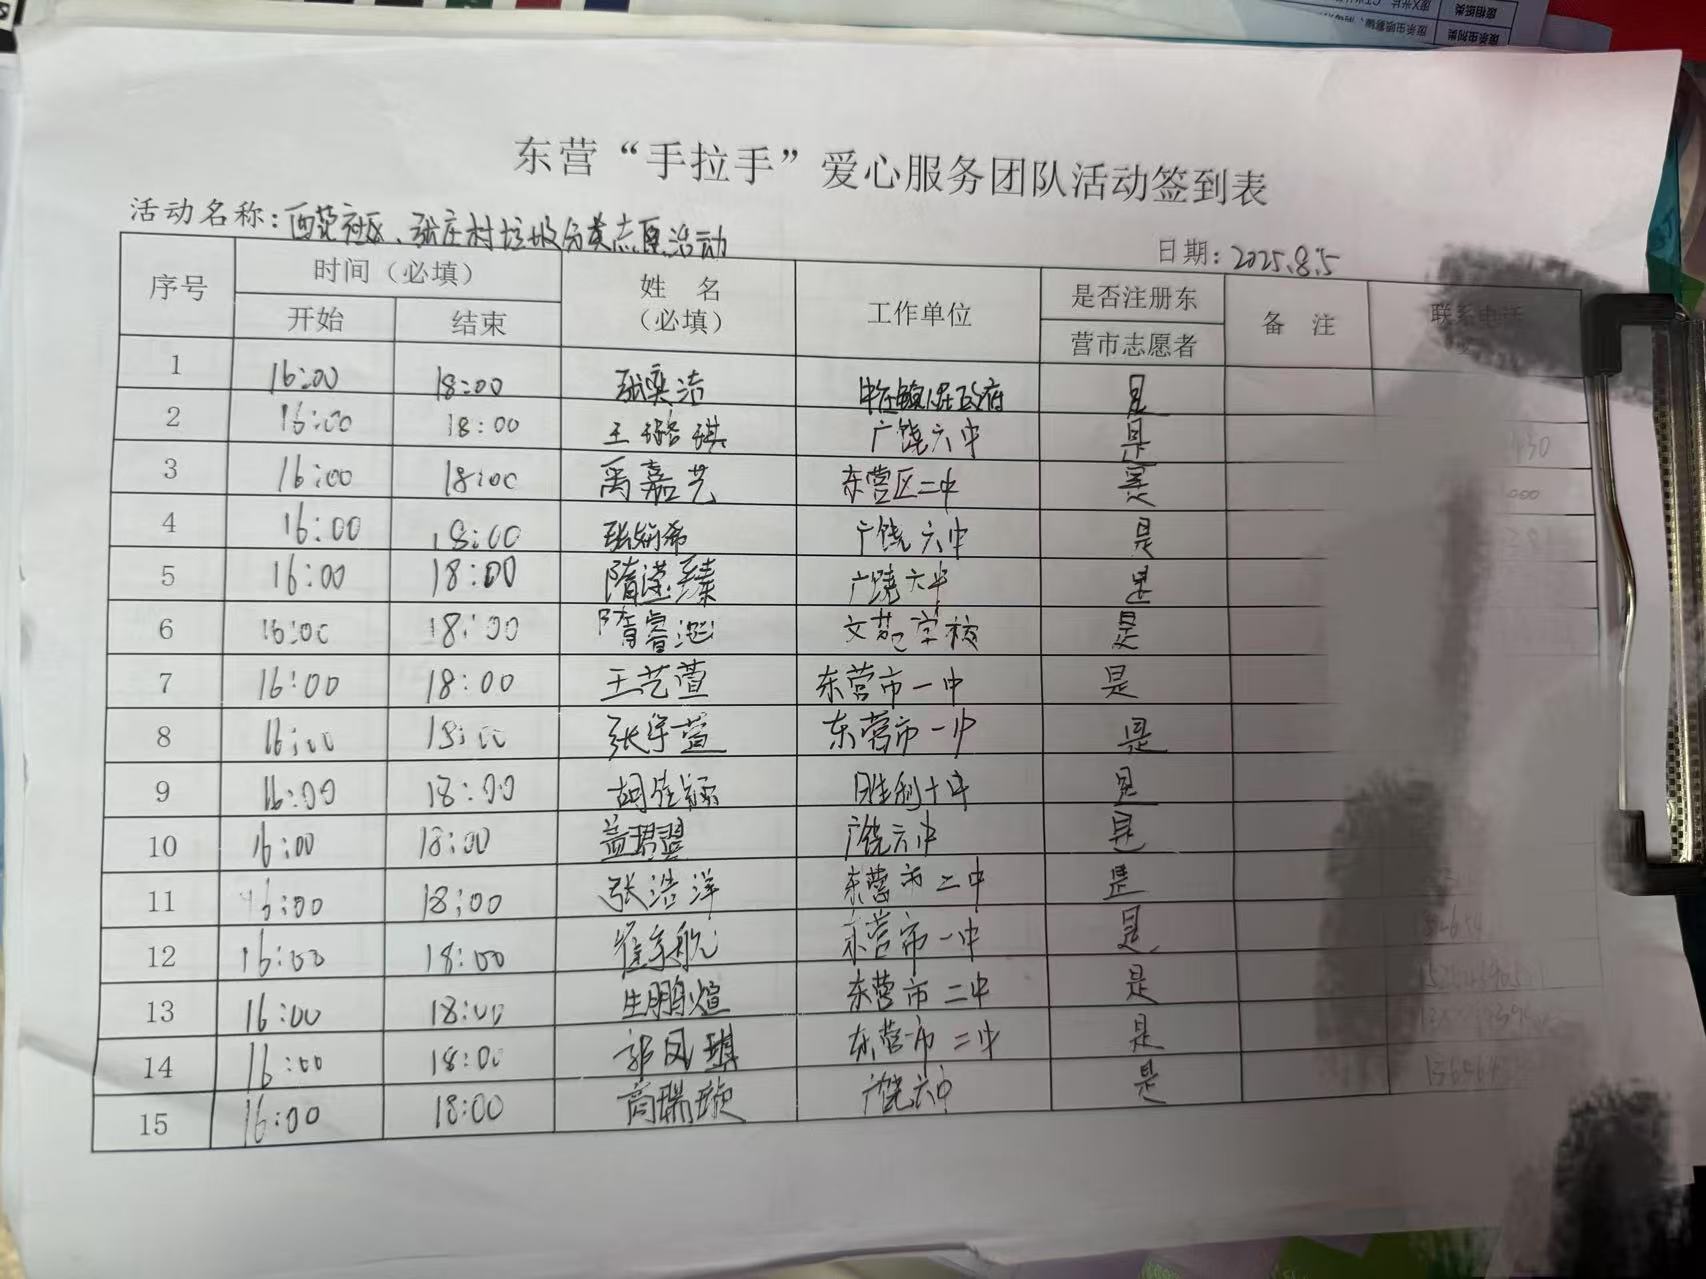 东营“手拉手”爱心服务团队活动签到表
活动名称：西苑社区、张庄村垃圾分类志愿活动
日期：2025.8.5
序号 时间（必填） 姓 名（必填） 工作单位 是否注册东营市志愿者 备 注 联系电话
开始 结束
1 16:00 18:00 张奕洁 政府 是
2 16:00 18:00 王璐琪 广饶六中 是
3 16:00 18:00 禹嘉艺 东营区二中 是
4 16:00 18:00 张 希 广饶六中 是
5 16:00 18:00 隋滢臻 广饶六中 是
6 16:00 18:00 隋睿 文苑学校 是
7 16:00 18:00 王艺萱 东营市一中 是
8 16:00 18:00 张宇萱 东营市一中 是
9 16:00 18:00 胡佳颖 胜利十中 是
10 16:00 18:00 益 广饶六中 是
11 16:00 18:00 张浩洋 东营市二中 是
12 16:00 18:00 崔 航 东营市一中 是
13 16:00 18:00 生鹏煊 东营市二中 是
14 16:00 18:00 郭风琪 东营市二中 是
15 16:00 18:00 高瑞璇 广饶六中 是